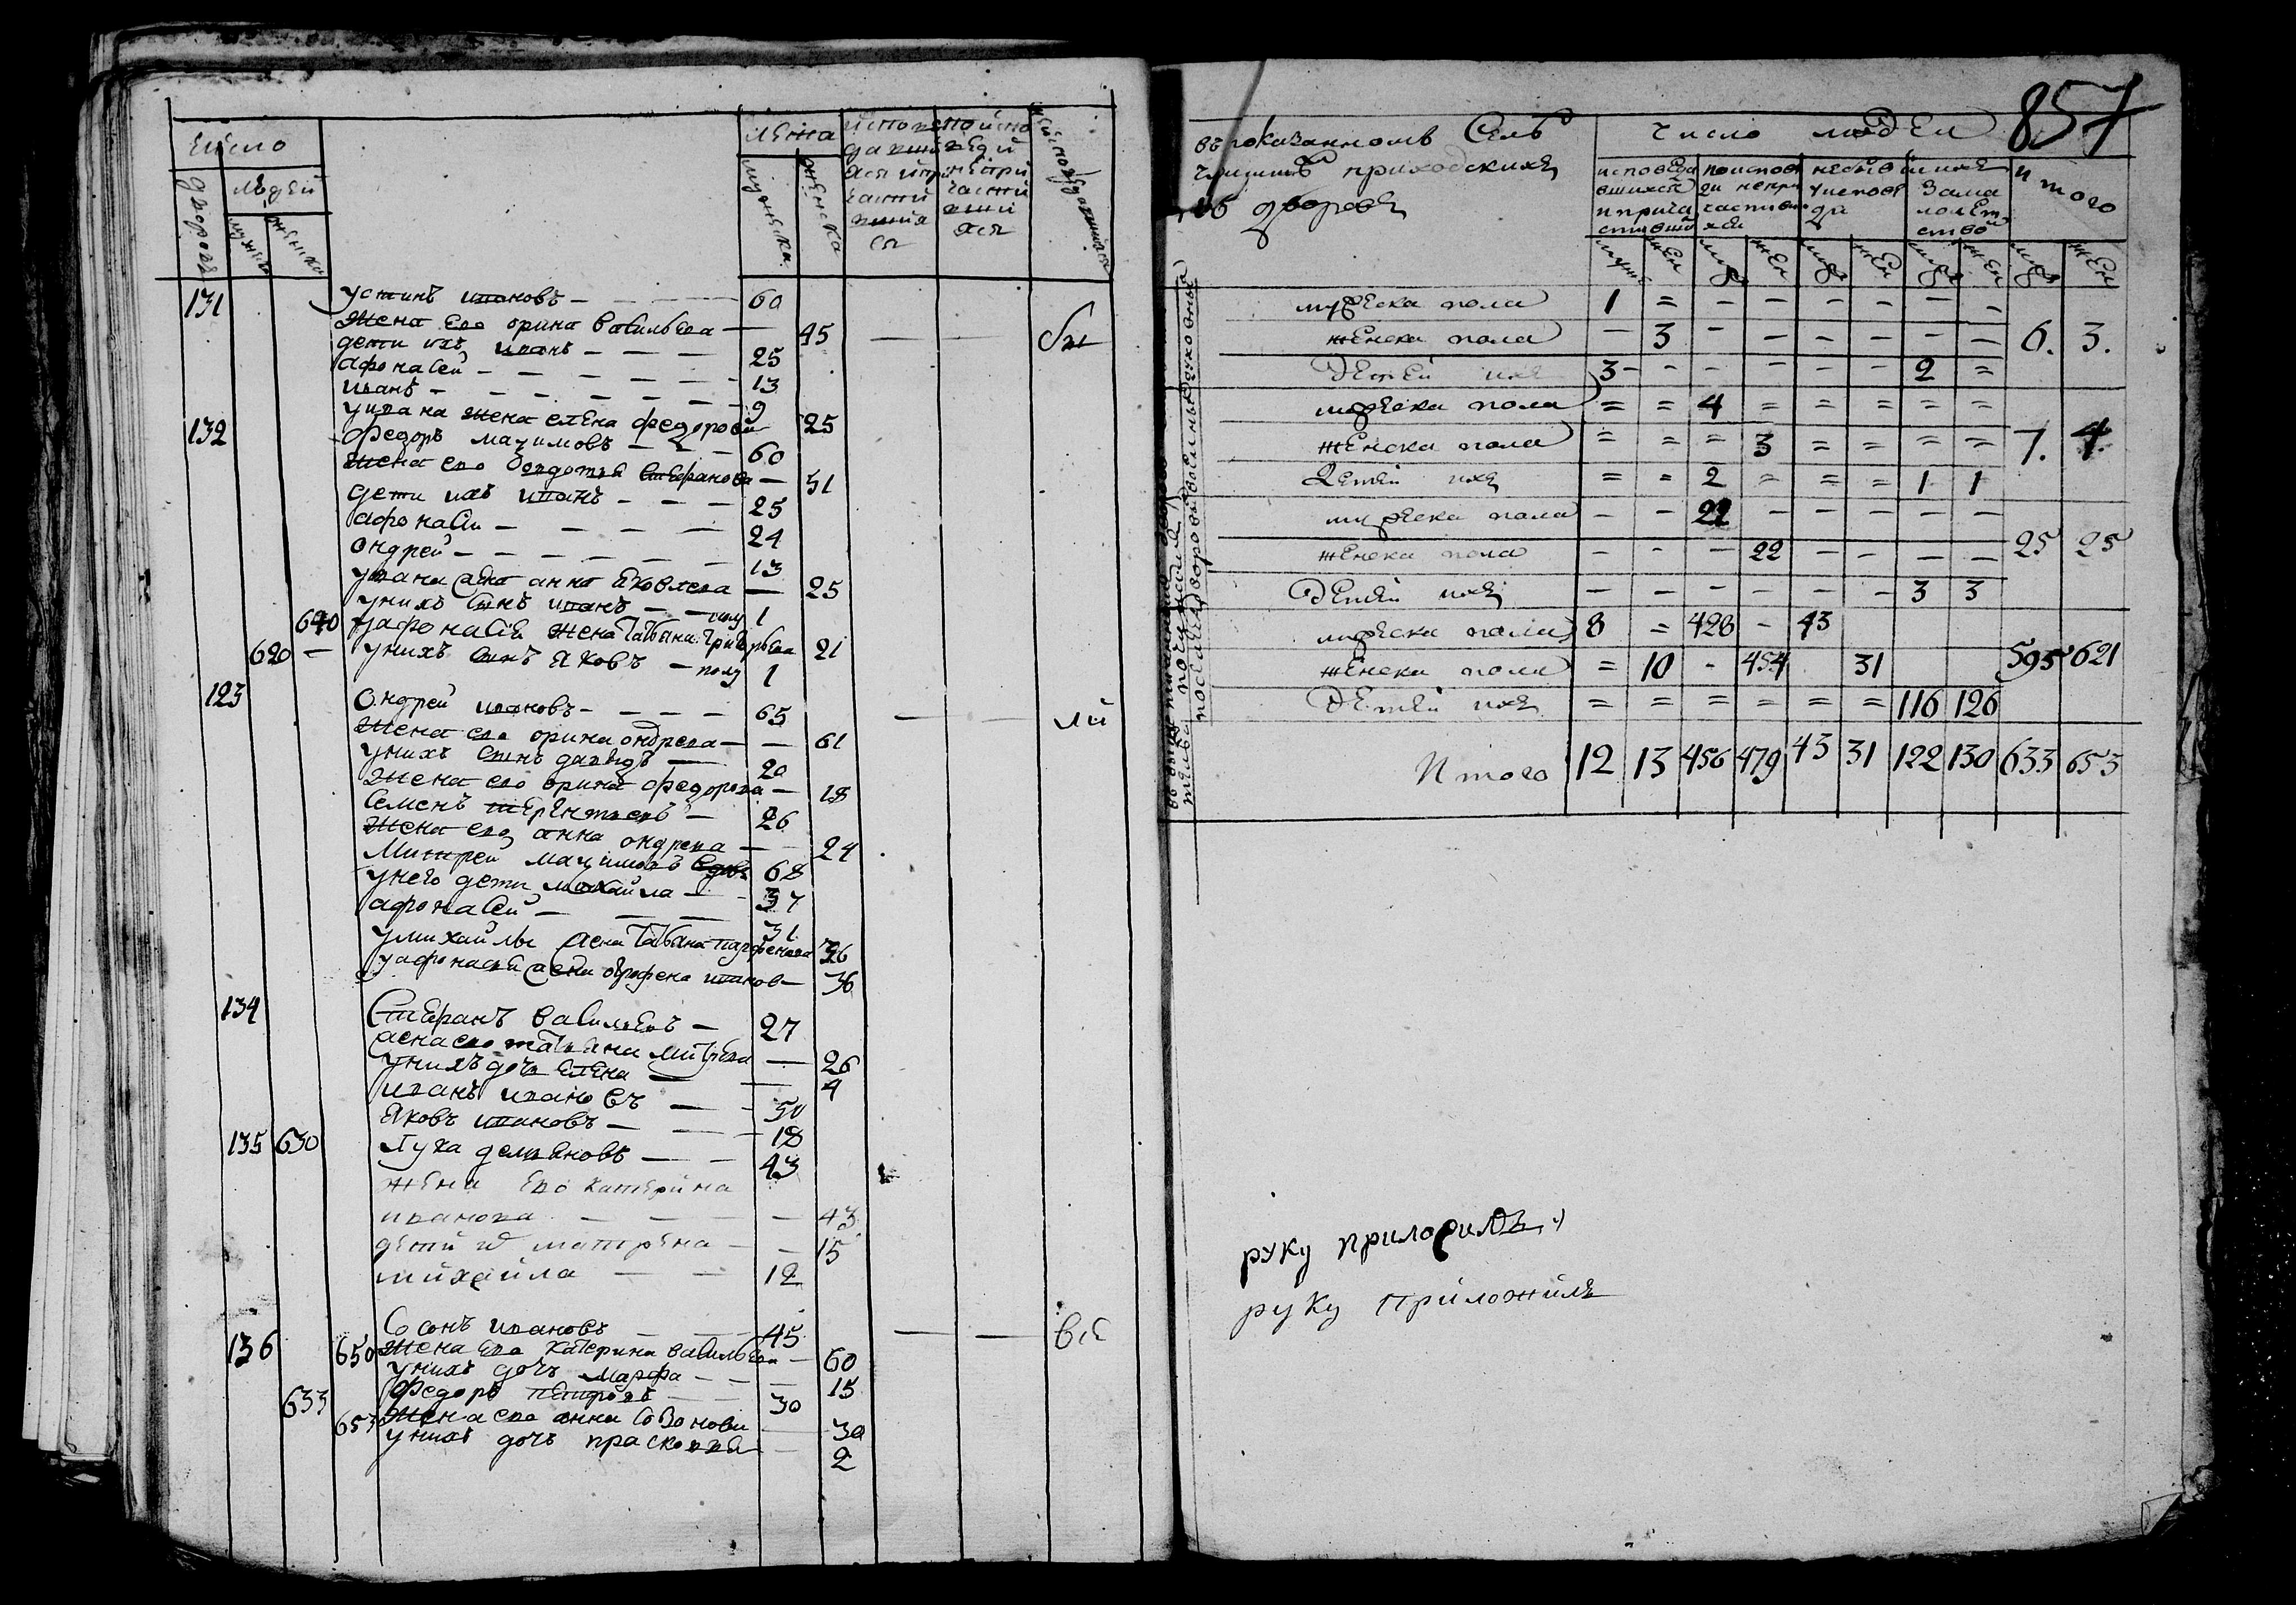 число
людей
лета
дворовъ
мужеска
женска
131 устинъ ивановъ — 60
жена ево орина васильева — 45
дети ихъ иванъ — 25
афонасей — 13
иванъ — 9
у ивана жена елена федорова 25
132 федоръ мадимовъ — 60
жена ево овдотья стефанова — 51
дети ихъ иванъ — 25
афонасий — 24
ондрей — 13
у ивана жена анна яковлева — 25
у нихъ сынъ иванъ — полу 1
640 у афонасея жена татьяна григорьева 21
620 — у нихъ сынъ яковъ — полу 1
123 ондрей ивановъ — 65 ли
жена ево орина ондреева — 61
у нихъ сынъ давыдъ — 20
жена ево орина федорова — 18
семенъ терентьевъ — 26
жена ево анна ондреева — 24
митрей вдовъ 68
у него дети михайла — 37
афонасей — 31
у михайлы жена татьяна парфенова 36
у афонасея жена офрофена иванов — 36
134 стефанъ васильевъ — 27
жена ево татьяна митрева — 26
у нихъ дочь елена — 4
иванъ ивановъ — 50
яковъ ивановъ — 18
135 630 лука демьяновъ — 43
жена ево катерина
иванова — 43
дети матрена — 15
михайла — 12
136 созонъ ивановъ — 45
650 жена ево катерина васильева — 60
у нихъ дочь марфа — 15
633 федоръ петровъ — 30
653 жена ево анна созонова — 30
у нихъ дочь прасковья — 2
857
в показанномъ селѣ
приходскихъ
дворовъ
число людей
итого
муж жен муж жен муж жен муж жен муж жен
мужеска пола 1 = — — — — — —
женска пола — 3 — — — — — — 6. 3.
детей ихъ 3 — — — — — 2 =
мужеска пола = = 4 = = = = =
женска пола = = = 3 = = = = 7. 4.
детей ихъ = = 2 = = = 1 1
мужеска пола — — 22 — — — — —
женска пола — — — 22 — — — — 25 25
детей ихъ — — — — — — 3 3
мужеска пола 8 = 428 — 43
женска пола = 10 — 454 31 595 621
детей ихъ = = = = = = 116 126
Итого 12 13 456 479 43 31 122 130 633 653
руку приложилъ
руку приложилъ